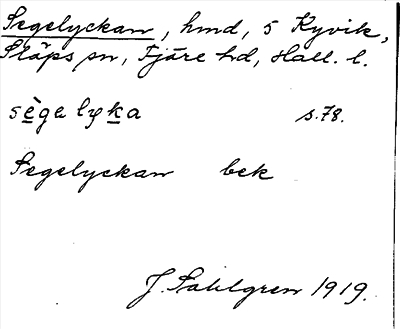 Segelyckan, hmd, 5 Kyvik,
Släps sn, Fjäre hd, Hall. l.
sègelyka s. 78.
Segelyckan bek
J. Sahlgren 1919.